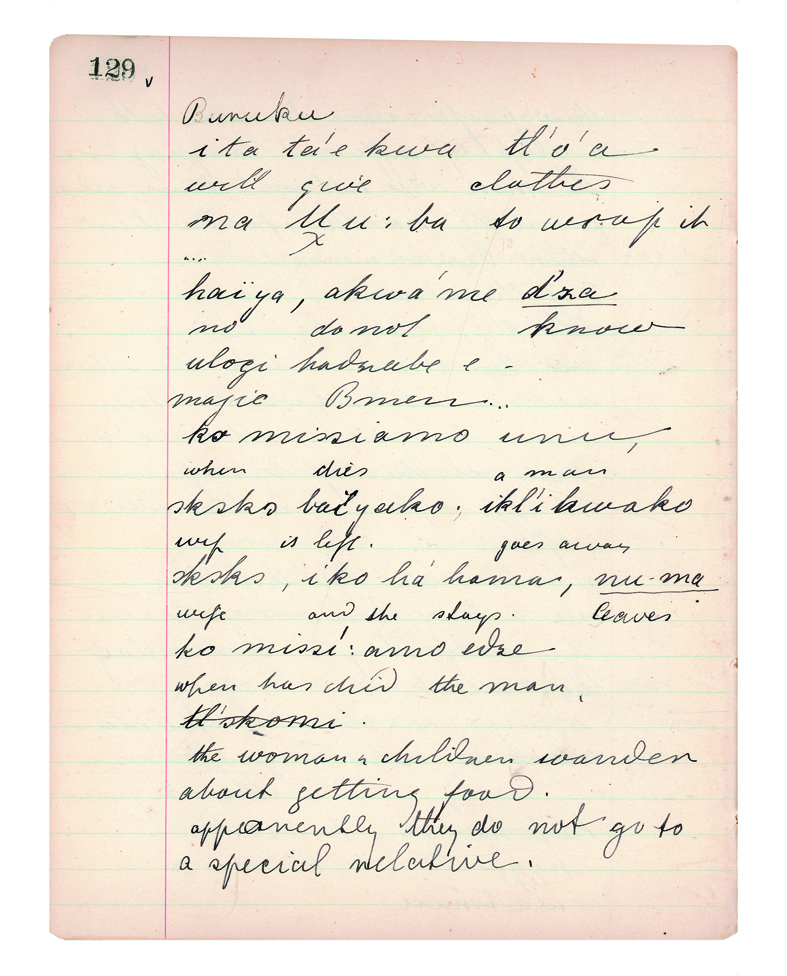 129 v
Buruku
ita ta'e kwa tl'o'a
will give clothes
na tlu:ba to wrap it
x
...
haïya, akwa'me d'za
no do not know
ulogi hadzabe e -
magic Bmen...
ko missiamo unu,
when dies a man
sksks bačyako; ikl'ikwako
wif is left. goes away
sksks, iko há hama, nu-ma
wife and she stays. leaves
ko missí:amo edze
when has died the man,
tl'skomi.
the woman & children wander
about getting food.
apparently they do not go to
a special relative.